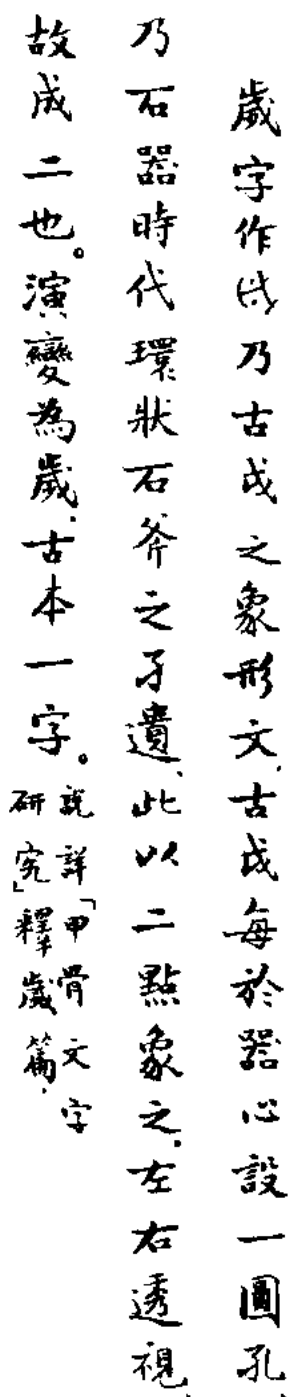 歲字作乃古戉之象形文，古戉每於器心設一圓孔，
乃石器時代環狀石斧之孑遺，此以二點象之，左右透視，
故成二也。演變為歲，古本一字。
說詳「甲骨文字
研究」釋歲篇，